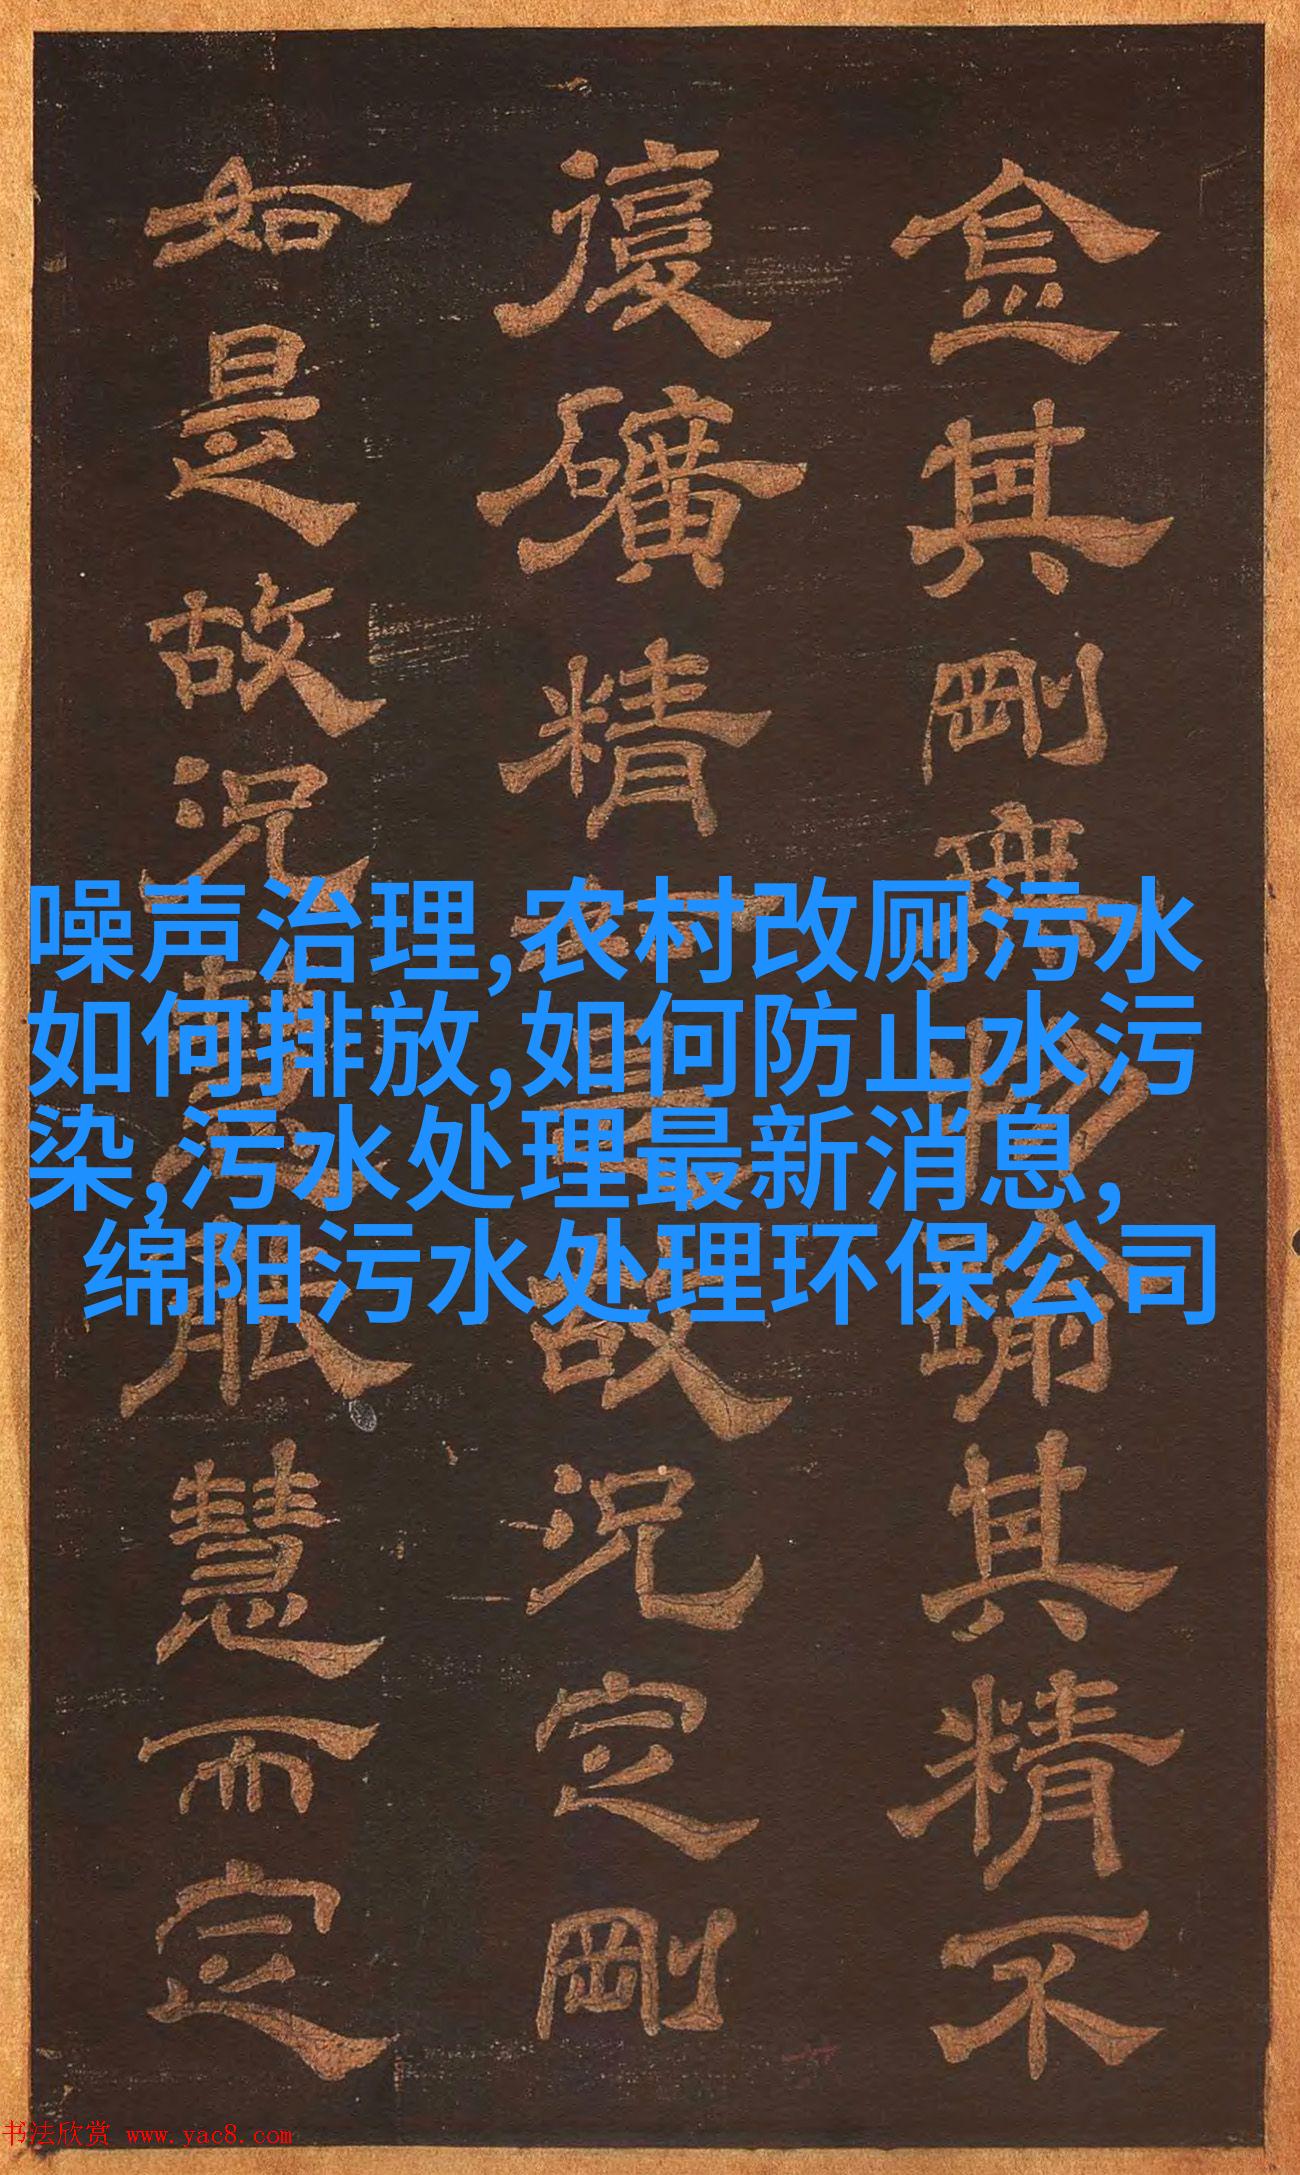 金其剛無物踰其精不
復礦精一故況定剛
如是故況慧眼慧而定
噪声治理,农村改厕污水
如何排放,如何防止水污
染,污水处理最新消息,
绵阳污水处理环保公司
书法欣赏 www.yac8.com